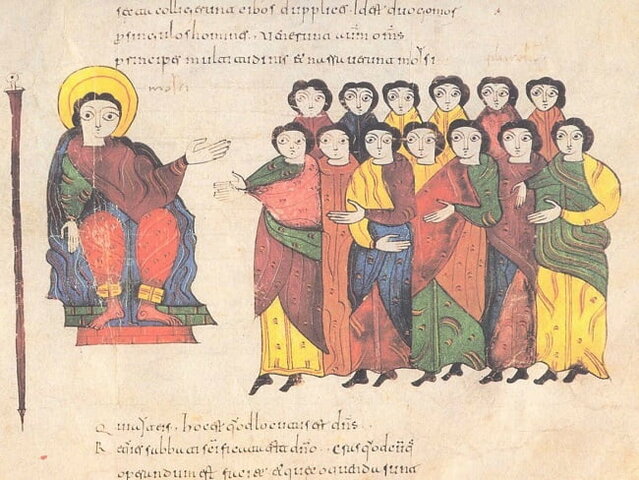 colligerunt cibos dupplices. Id est duo gomor
singulos homines. venerunt autm oms
principes multitudinis et narraverunt mosi
mosi
Qui ait eis. hoc est quod locutus est dns.
Requies sabbati scificata est dno. Cras quodcumq
operandum est facite et que coquenda sunt